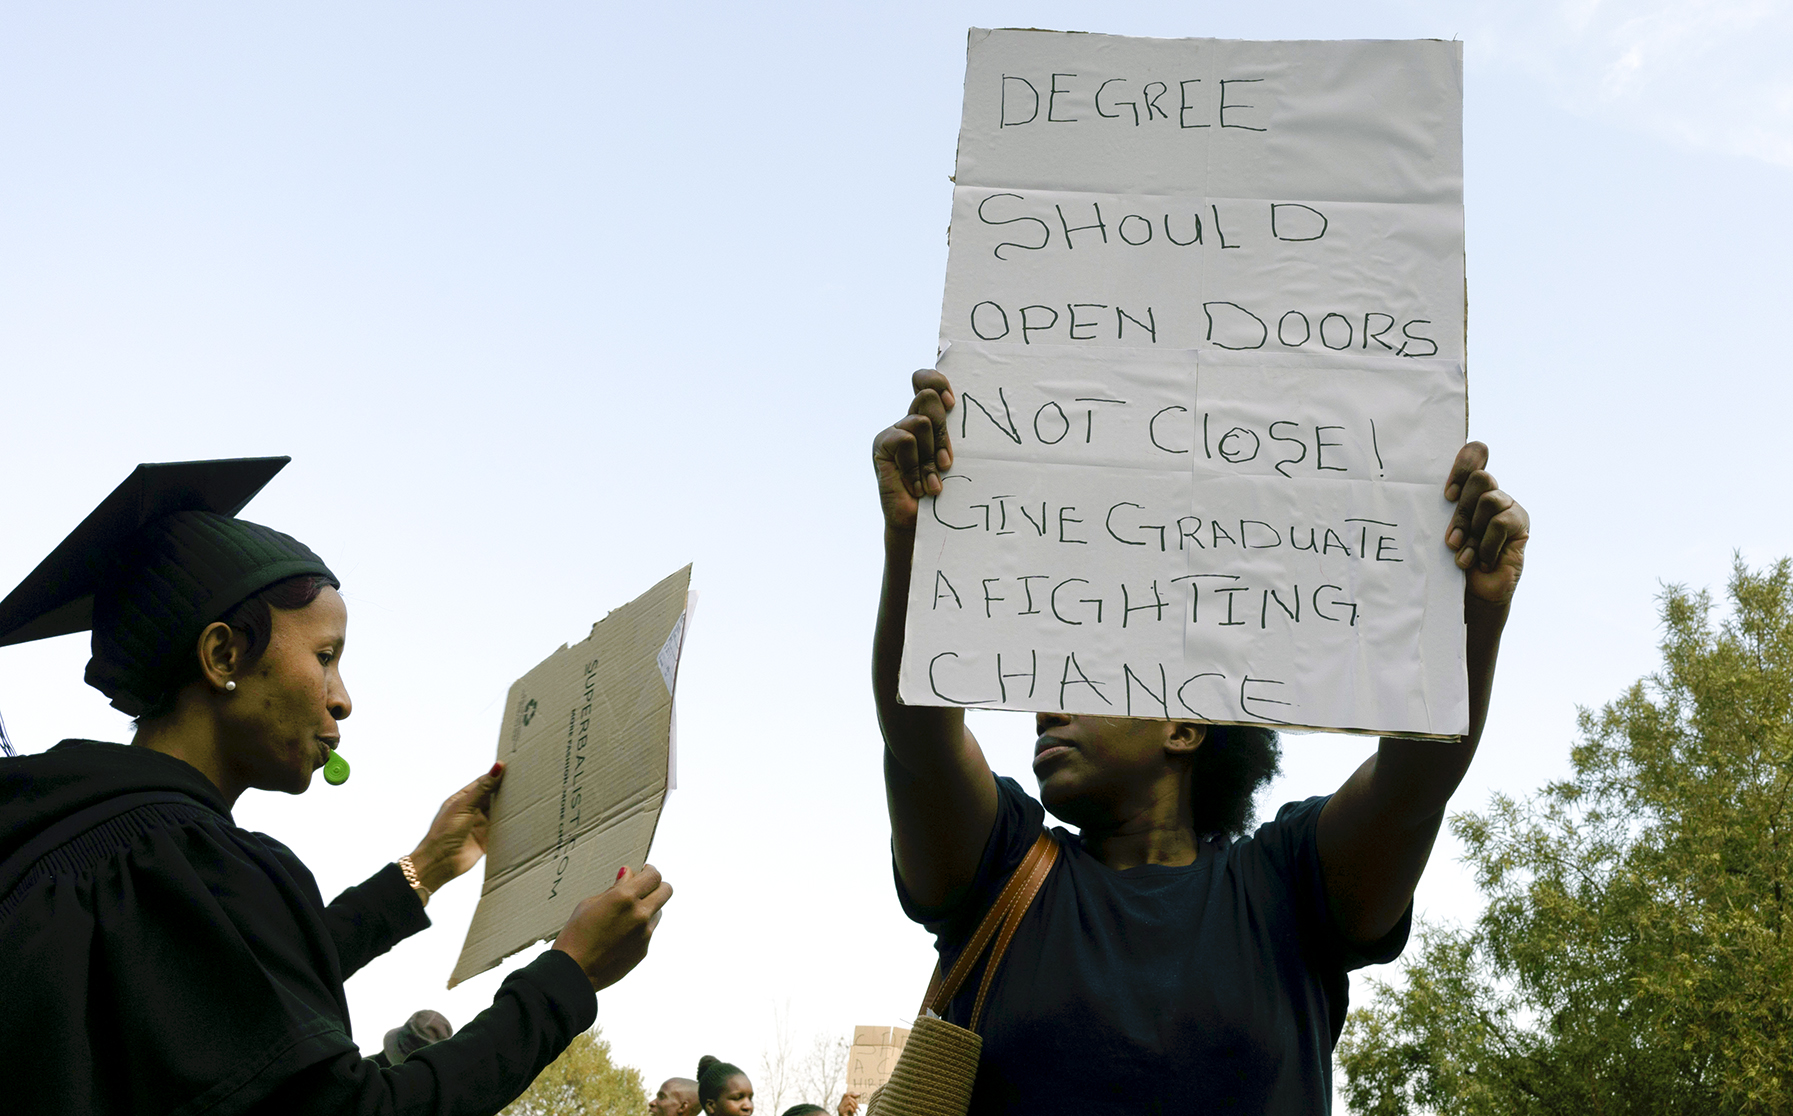 DEGREE
SHOULD
OPEN DOORS
NOT CLOSE!
GIVE GRADUATE
A FIGHTING
CHANCE
SUPERBALIST.COM
A